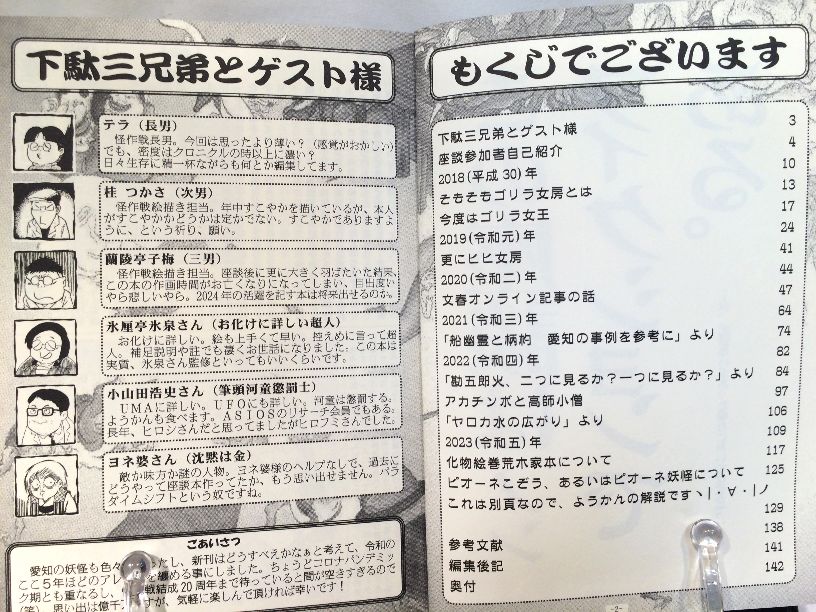 下駄三兄弟とゲスト様
テラ（長男）
怪作戦長男。今回は思ったより薄い？（感覚がおかしい）
でも、密度はクロニクルの時以上に濃い？
日々生存に精一杯ながらも何とか編集してます。
桂 つかさ（次男）
怪作戦絵描き担当。年中すこやかを描いているが、本人
がすこやかかどうかは定かでない。すこやかでありますよ
うに、という祈り、願い。
蘭陵亭子梅（三男）
怪作戦絵描き担当。座談後に更に大きく羽ばたいた結果、
この本の作画時間がお亡くなりになってしまい、目出度い
やら悲しいやら。2024年の活躍を記す本は将来出せるのか。
氷厘亭氷泉さん（お化けに詳しい超人）
お化けに詳しい。絵も上手くて早い。控えめに言って超
人。補足説明や註でも凄くお世話になりました。この本は
実質、氷泉さん監修といってもいいくらいです。
小山田浩史さん（筆頭河童懲罰士）
UMAに詳しい。UFOにも詳しい。河童は懲罰する。
ようかんも食べます。ASIOSのリサーチ会員でもある。
長年、ヒロシさんだと思ってましたがヒロフミさんでした。
ヨネ婆さん（沈黙は金）
敵か味方か謎の人物。ヨネ婆様のヘルプなしで、過去に
どうやって座談本作ってたか、もう思い出せません。パラ
ダイムシフトという奴ですね。
ごあいさつ
愛知の妖怪も色々 ったし、新刊はどうすべえかなぁと考えて、令和の
ここ5年ほどのアレ を纏める事にしました。ちょうどコロナパンデミッ
ク期とも重なるし、 戦結成20周年まで待っていると間が空きすぎるので
（笑）。思い出は億千 すが、気軽に楽しんで頂ければ幸いです！
もくじでございます
下駄三兄弟とゲスト様 3
座談参加者自己紹介 4
2018(平成30)年 10
そもそもゴリラ女房とは 13
今度はゴリラ女王 17
2019(令和元)年 24
更にヒヒ女房 41
2020(令和二)年 44
文春オンライン記事の話 47
2021(令和三)年 64
「船幽霊と柄杓 愛知の事例を参考に」より 74
2022(令和四)年 82
「勘五郎火、二つに見るか？一つに見るか？」より 84
アカチンボと高師小僧 97
「ヤロカ水の広がり」より 106
2023(令和五)年 109
化物絵巻荒木家本について 117
ピオーネこぞう、あるいはピオーネ妖怪について 125
これは別頁なので、ようかんの解説ですヽ|・∀・|ノ
129
138
参考文献 141
編集後記 142
奥付
-2-